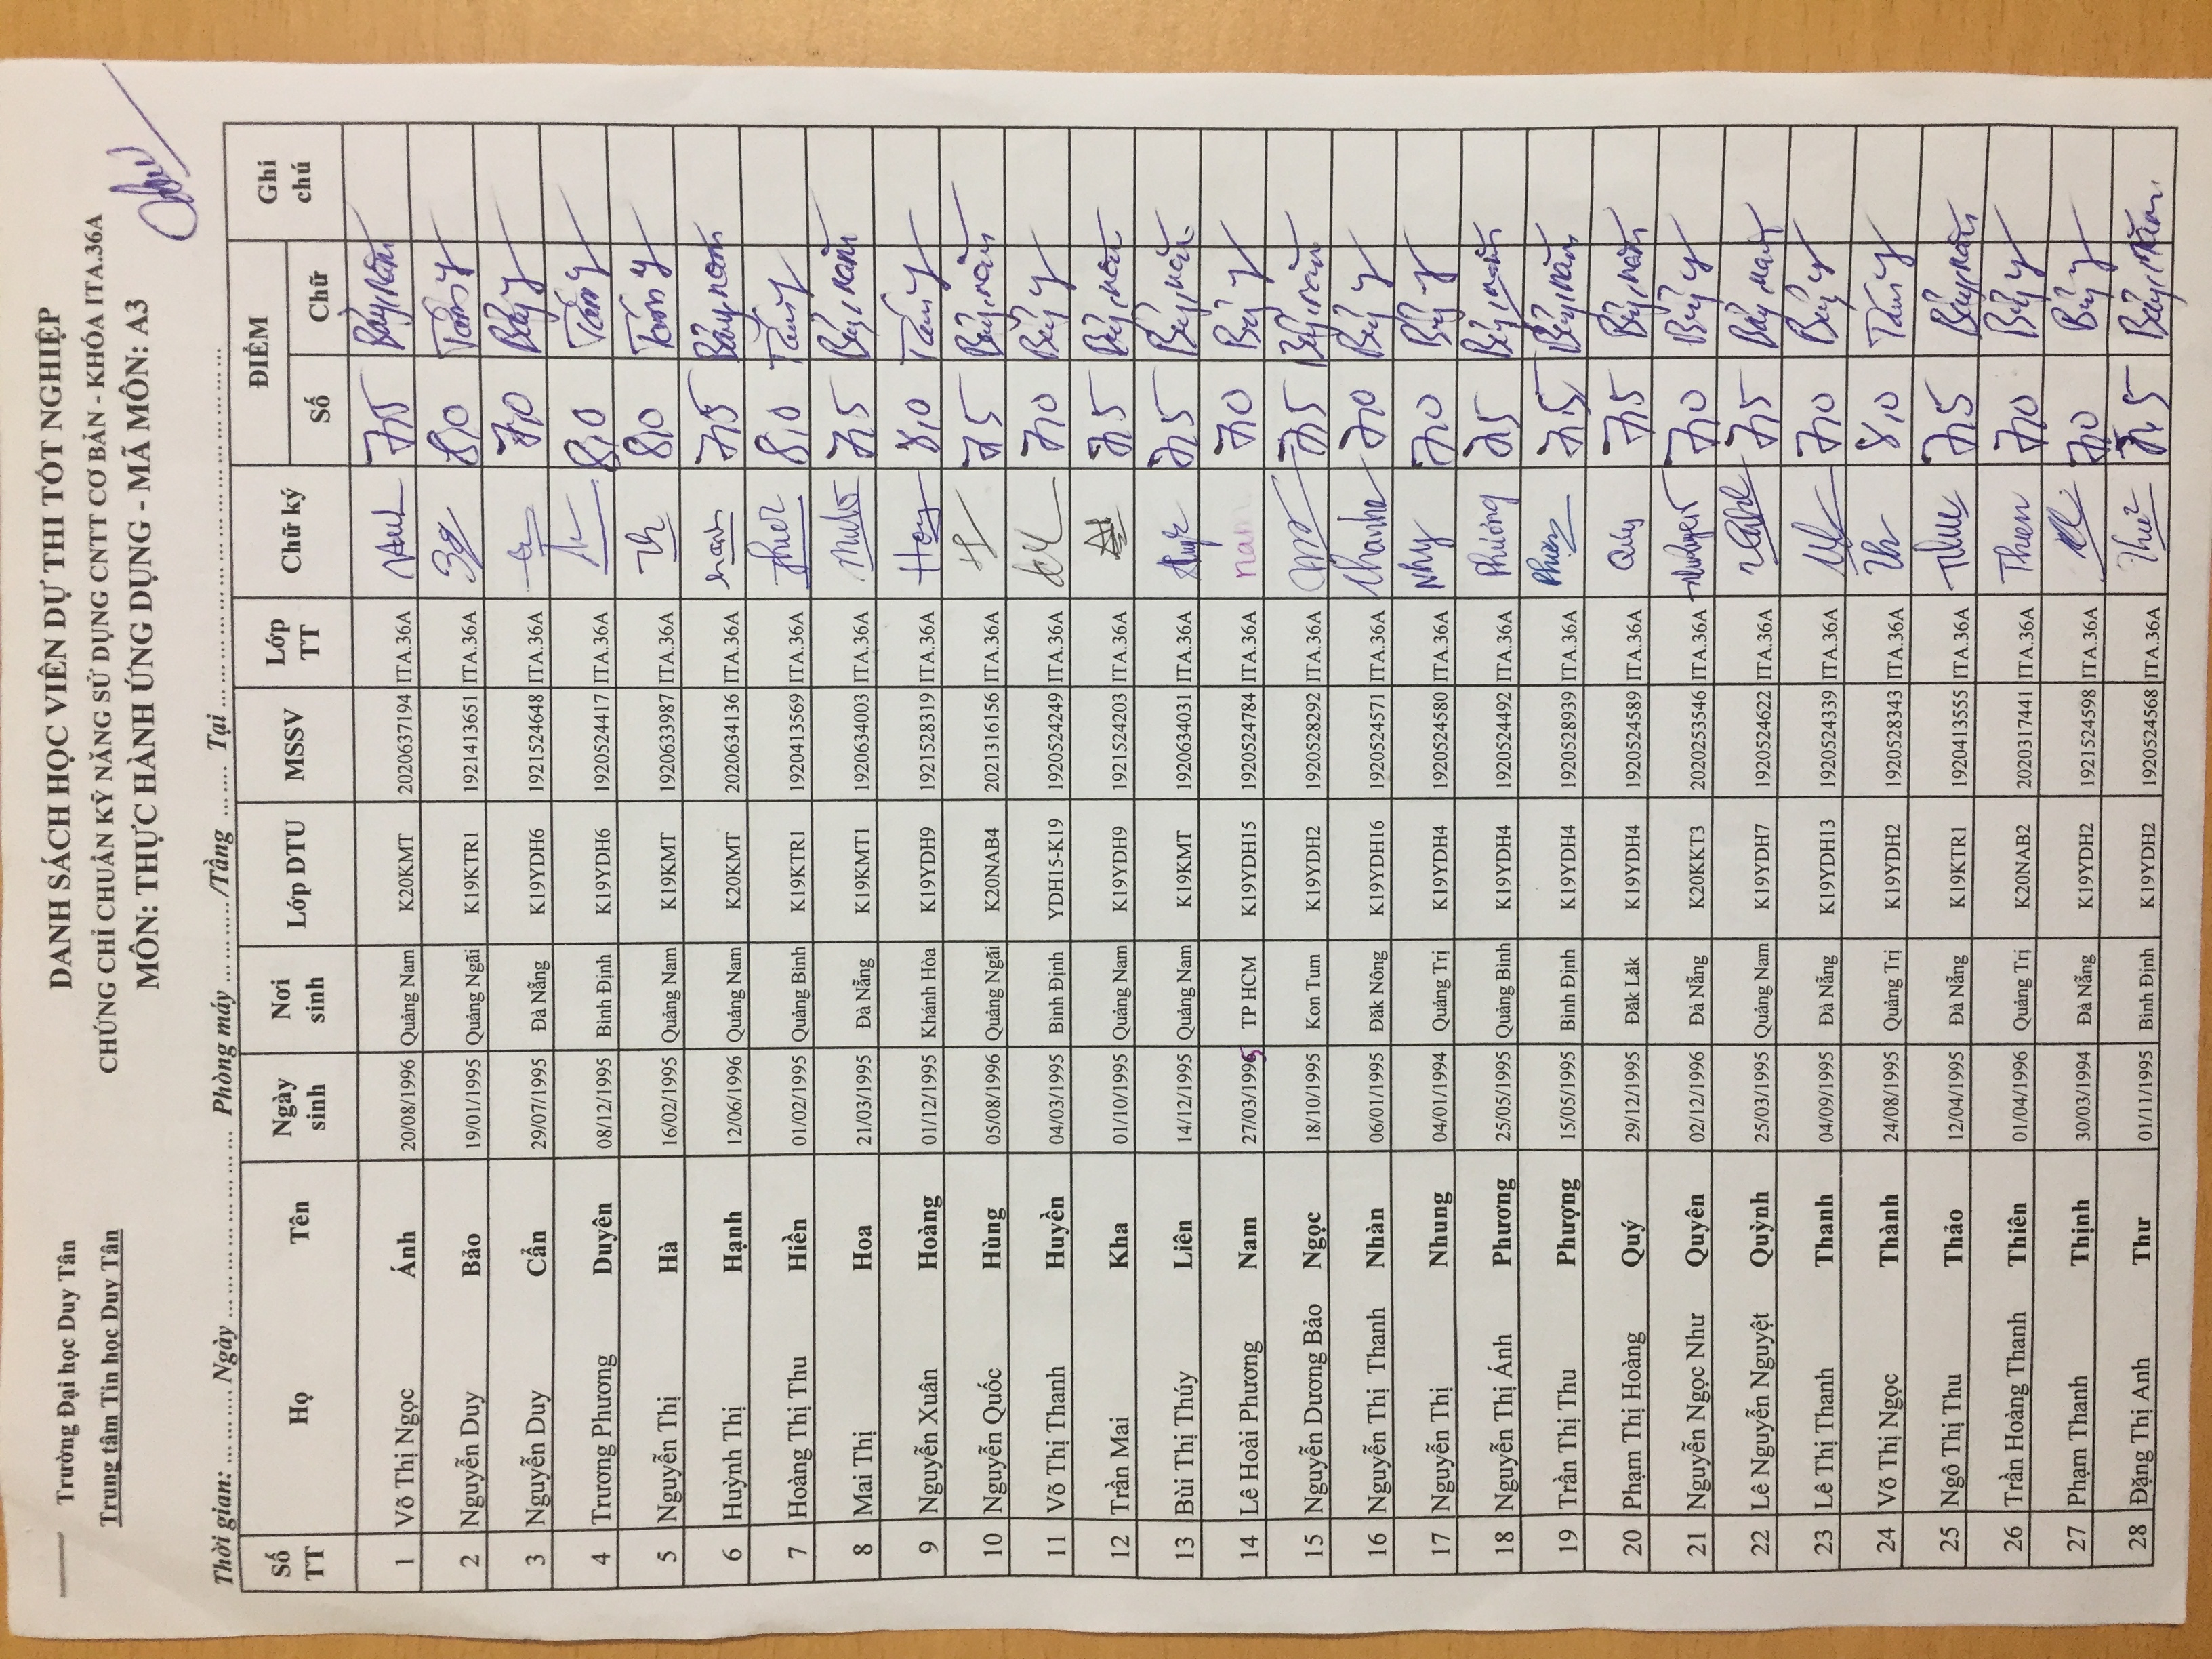 Trường Đại học Duy Tân
Trung tâm Tin học Duy Tân
DANH SÁCH HỌC VIÊN DỰ THI TỐT NGHIỆP
CHỨNG CHỈ CHUẨN KỸ NĂNG SỬ DỤNG CNTT CƠ BẢN - KHÓA ITA.36A
MÔN: THỰC HÀNH ỨNG DỤNG - MÃ MÔN: A3
Thời gian: ............ Ngày ........................ Phòng máy ............/Tầng ....... Tại ..............................................
Số TT Họ Tên Ngày sinh Nơi sinh Lớp DTU MSSV Lớp TT Chữ ký ĐIỂM Số Chữ Ghi chú
1 Võ Thị Ngọc Ánh 20/08/1996 Quảng Nam K20KMT 2020637194 ITA.36A 7,5 Bảy, năm
2 Nguyễn Duy Bảo 19/01/1995 Quảng Ngãi K19KTR1 1921413651 ITA.36A 8,0 Tám y
3 Nguyễn Duy Cẩn 29/07/1995 Đà Nẵng K19YDH6 1921524648 ITA.36A 7,0 Bảy y
4 Trương Phương Duyên 08/12/1995 Bình Định K19YDH6 1920524417 ITA.36A 8,0 Tám y
5 Nguyễn Thị Hà 16/02/1995 Quảng Nam K19KMT 1920633987 ITA.36A 8,0 Tám y
6 Huỳnh Thị Hạnh 12/06/1996 Quảng Nam K20KMT 2020634136 ITA.36A hạnh 7,5 Bảy, năm
7 Hoàng Thị Thu Hiền 01/02/1995 Quảng Bình K19KTR1 1920413569 ITA.36A 8,0 Tám y
8 Mai Thị Hoa 21/03/1995 Đà Nẵng K19KMT1 1920634003 ITA.36A 7,5 Bảy, năm
9 Nguyễn Xuân Hoàng 01/12/1995 Khánh Hòa K19YDH9 1921528319 ITA.36A 8,0 Tám y
10 Nguyễn Quốc Hùng 05/08/1996 Quảng Ngãi K20NAB4 2021316156 ITA.36A 7,5 Bảy, năm
11 Võ Thị Thanh Huyền 04/03/1995 Bình Định YDH15-K19 1920524249 ITA.36A 7,0 Bảy y
12 Trần Mai Kha 01/10/1995 Quảng Nam K19YDH9 1921524203 ITA.36A 7,5 Bảy, năm
13 Bùi Thị Thúy Liên 14/12/1995 Quảng Nam K19KMT 1920634031 ITA.36A 7,5 Bảy, năm
14 Lê Hoài Phương Nam 27/03/1995 TP HCM K19YDH15 1920524784 ITA.36A nam 7,0 Bảy y
15 Nguyễn Dương Bảo Ngọc 18/10/1995 Kon Tum K19YDH2 1920528292 ITA.36A 7,5 Bảy, năm
16 Nguyễn Thị Thanh Nhàn 06/01/1995 Đăk Nông K19YDH16 1920524571 ITA.36A 7,0 Bảy y
17 Nguyễn Thị Nhung 04/01/1994 Quảng Trị K19YDH4 1920524580 ITA.36A Nhy 7,0 Bảy y
18 Nguyễn Thị Ánh Phương 25/05/1995 Quảng Bình K19YDH4 1920524492 ITA.36A Phương 7,5 Bảy, năm
19 Trần Thị Thu Phượng 15/05/1995 Bình Định K19YDH4 1920528939 ITA.36A 7,5 Bảy, năm
20 Phạm Thị Hoàng Quý 29/12/1995 Đăk Lăk K19YDH4 1920524589 ITA.36A Quý 7,5 Bảy, năm
21 Nguyễn Ngọc Như Quyên 02/12/1996 Đà Nẵng K20KKT3 2020253546 ITA.36A 7,0 Bảy y
22 Lê Nguyễn Nguyệt Quỳnh 25/03/1995 Quảng Nam K19YDH7 1920524622 ITA.36A 7,5 Bảy, năm
23 Lê Thị Thanh Thanh 04/09/1995 Đà Nẵng K19YDH13 1920524339 ITA.36A 7,0 Bảy y
24 Võ Thị Ngọc Thành 24/08/1995 Quảng Trị K19YDH2 1920528343 ITA.36A 8,0 Tám y
25 Ngô Thị Thu Thảo 12/04/1995 Đà Nẵng K19KTR1 1920413555 ITA.36A 7,5 Bảy, năm
26 Trần Hoàng Thanh Thiên 01/04/1996 Quảng Trị K20NAB2 2020317441 ITA.36A Thien 7,0 Bảy y
27 Phạm Thanh Thịnh 30/03/1994 Đà Nẵng K19YDH2 1921524598 ITA.36A 7,0 Bảy y
28 Đặng Thị Anh Thư 01/11/1995 Bình Định K19YDH2 1920524568 ITA.36A Thư 7,5 Bảy, năm